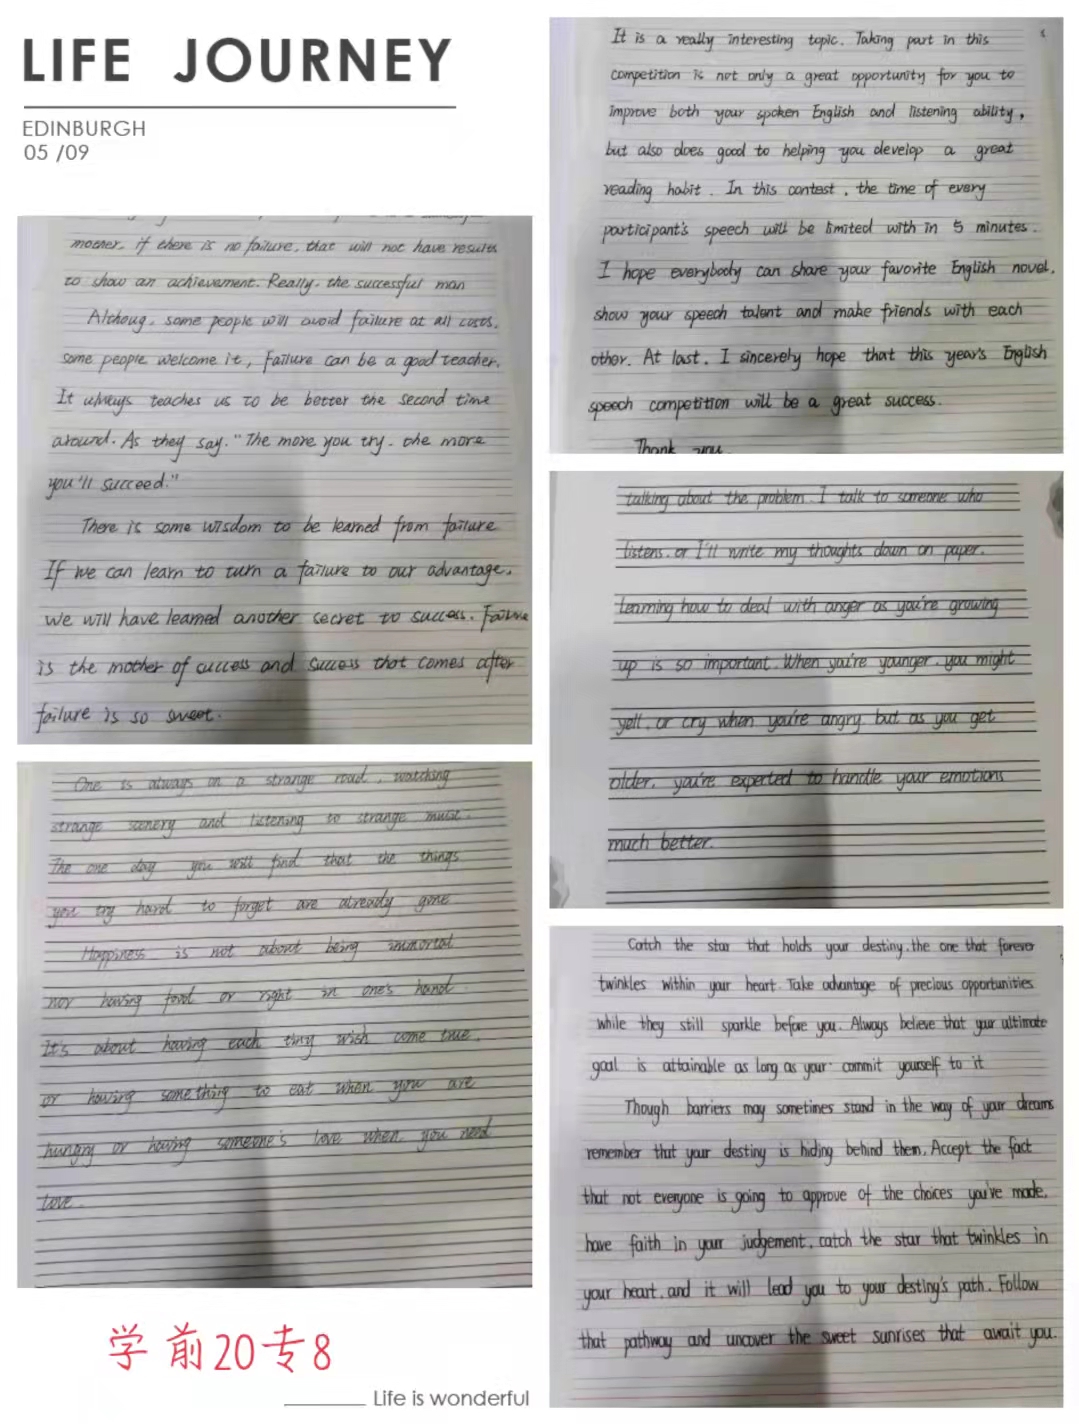 LIFE JOURNEY
EDINBURGH
05 /09
mother. if there is no failure, that will not have results
to show an achievement. Really. the successful man
Althoug. some people will avoid failure at all costs.
some people welcome it, Failure can be a good teacher.
It always teaches us to be better the second time
around. As they say. "The more you try. the more
you'll succeed."
There is some wisdom to be learned from failure
If we can learn to turn a failure to our advantage.
we will have learned another secret to success. Failure
is the mother of success and success that comes after
failure is so sweet.
One is always on a strange road, watching
strange scenery and listening to strange music.
The one day you will find that the things
you try hard to forget are already gone
Happiness is not about being immortal
nor having food or right in one's hand
It's about having each tiny wish come true.
or having something to eat when you are
hungry or having someone's love when you need
love.
学前20专8
Life is wonderful
It is a really interesting topic. Taking part in this
competition is not only a great opportunity for you to
improve both your spoken English and listening ability,
but also does good to helping you develop a great
reading habit. In this contest, the time of every
participant's speech will be limited with in 5 minutes.
I hope everybody can share your favorite English novel.
show your speech talent and make friends with each
other. At last. I sincerely hope that this year's English
speech competition will be a great success.
Thank you.
talking about the problem. I talk to someone who
listens. or I'll write my thoughts down on paper.
Learning how to deal with anger as you're growing
up is so important. When you're younger. you might
yell. or cry when you're angry. but as you get
older. you're expected to handle your emotions
much better.
Catch the star that holds your destiny. the one that forever
twinkles within your heart. Take advantage of precious opportunities
while they still sparkle before you. Always believe that your ultimate
goal is attainable as long as your commit yourself to it
Though barriers may sometimes stand in the way of your dreams
remember that your destiny is hiding behind them. Accept the fact
that not everyone is going to approve of the choices you've made.
have faith in your judgement. catch the star that twinkles in
your heart. and it will lead you to your destiny's path. Follow
that pathway and uncover the sweet sunrises that await you.